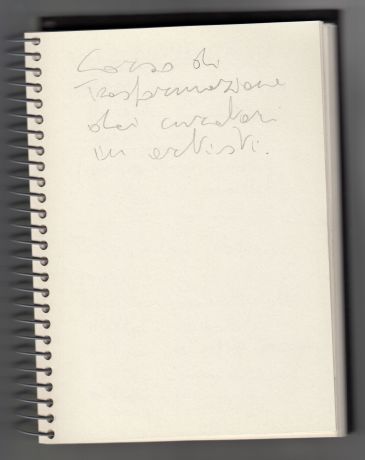 Corso di
Trasformazione
dei curatori
in artisti.